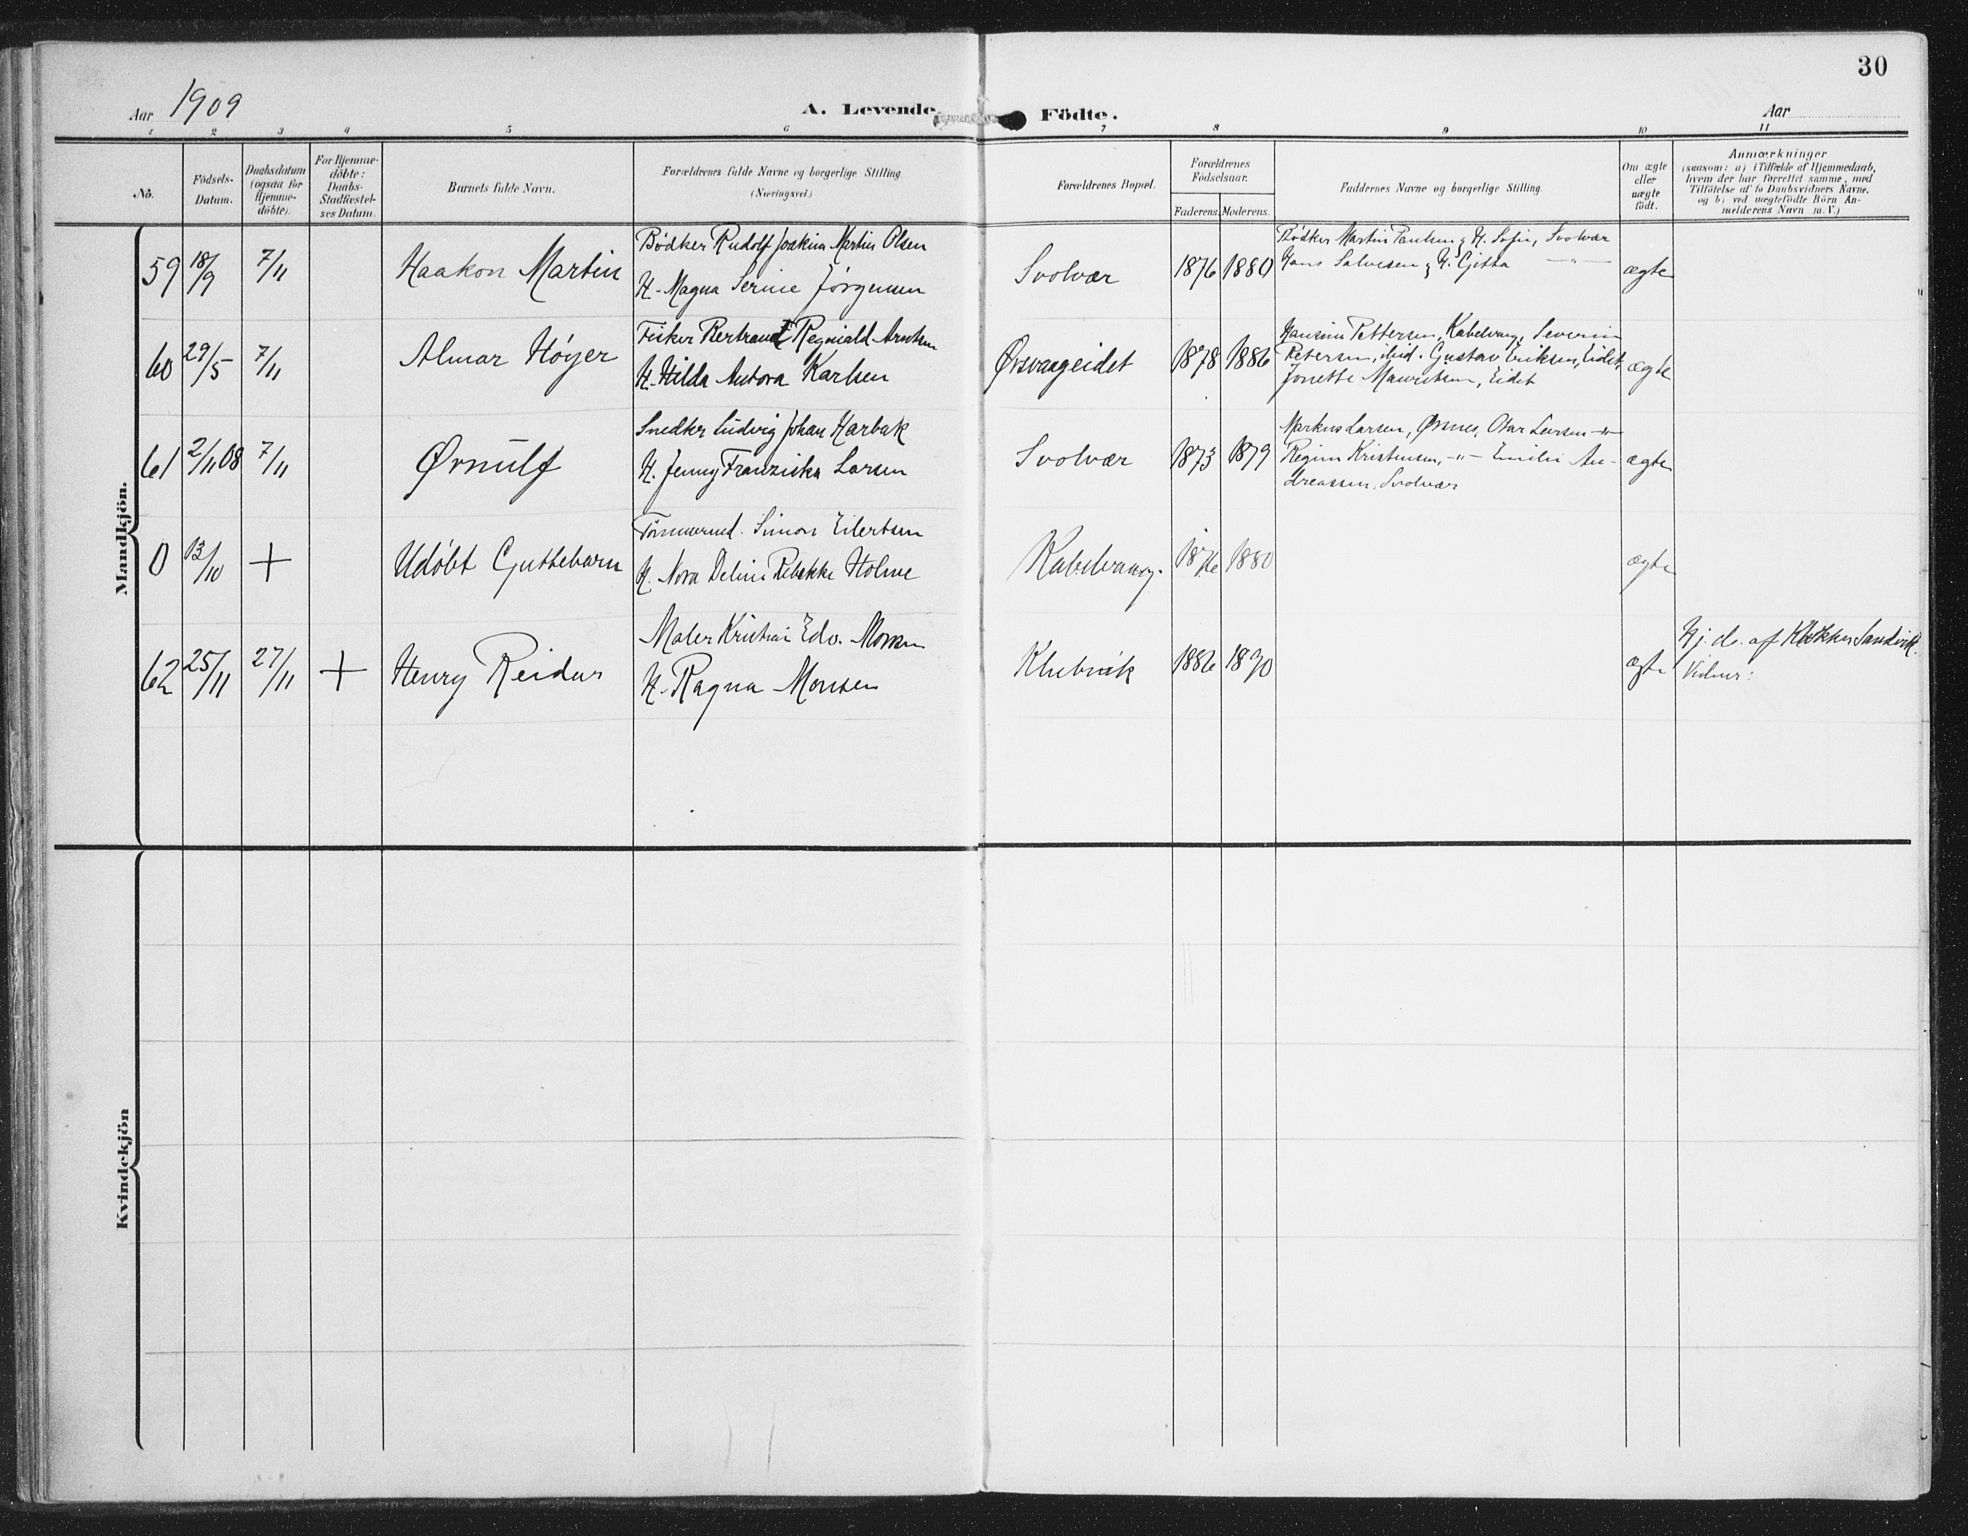 30
Aar 1909
A. Levende Födte.
Aar
1 2 3 4 5 6 7 8 9 10 11
No.
Födsels-Datum.
Daabsdatum (ogsaa for Hjemme-döbte).
For Hjemme-döbte: Daabs-Stadfæstel-ses Datum.
Barnets fulde Navn.
Forældrenes fulde Navne og borgerlige Stilling (Næringsvei.)
Forældrenes Bopæl.
Forældrenes Födselsaar.
Faderens. Moderens.
Faddernes Navne og borgerlige Stilling.
Om ægte eller uægte födt.
Anmærkninger
(saasom: a) i Tilfælde af Hjemmedaab,
hvem der har forrettet samme, med
Tilföielse af to Daabsvidners Navne.
og b) ved uægtefödte Börn An-
melderens Navn m. V.)
Mandkjön.
59 18/9 7/11 Haakon Martin
Bødker Rudolf Joakim Martin Olsen
H. Magna Serine Jörgensen
Svolvær 1876 1880
Bødker Martin Paulsen & H. Sofie, Svolvær
Hans Salvesen & H. Gitta —"—
ægte
60 29/5 7/11 Almar Höyer
Fisker Bertrand Regnald Arntsen
H. Hilda Antora Karlsen
Ørsvaageidet 1878 1886
Hansine Pettersen, Kabelvaag, Severin
Petersen, ibid. Gustav Eriksen, Eidet,
Jonette Mauritsen, Eidet
ægte
61 2/11 08 7/11 Ørnulf
Snedker Ludvig Johan Harbak
H. Jenny Franziska Larsen
Svolvær 1873 1879
Markus Larsen, Ørsnes, Olar Larsen —"—
Regine Kristensen, —"— Emilie An-
dreassen, Svolvær
ægte
0 13/10 + Udøbt Guttebarn
Tømmermd. Simon Eilertsen
H. Nora Deline Rebekke Holme
Kabelvaag. 1876 1880
ægte
62 25/11 27/11 + Henry Reidar
Maler Kristian Edv. Monsen
H. Ragna Monsen
Klubvik 1886 1890
ægte
Hj. dø. af Klokker Sandvik.
Vidner:
Kvindekjön